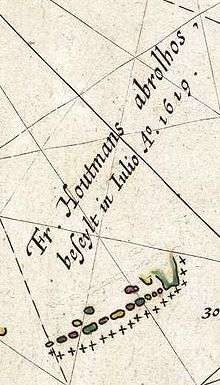 Fr. Houtmans abrolhos,
beseylt in Iulio Aº. 1619.
30